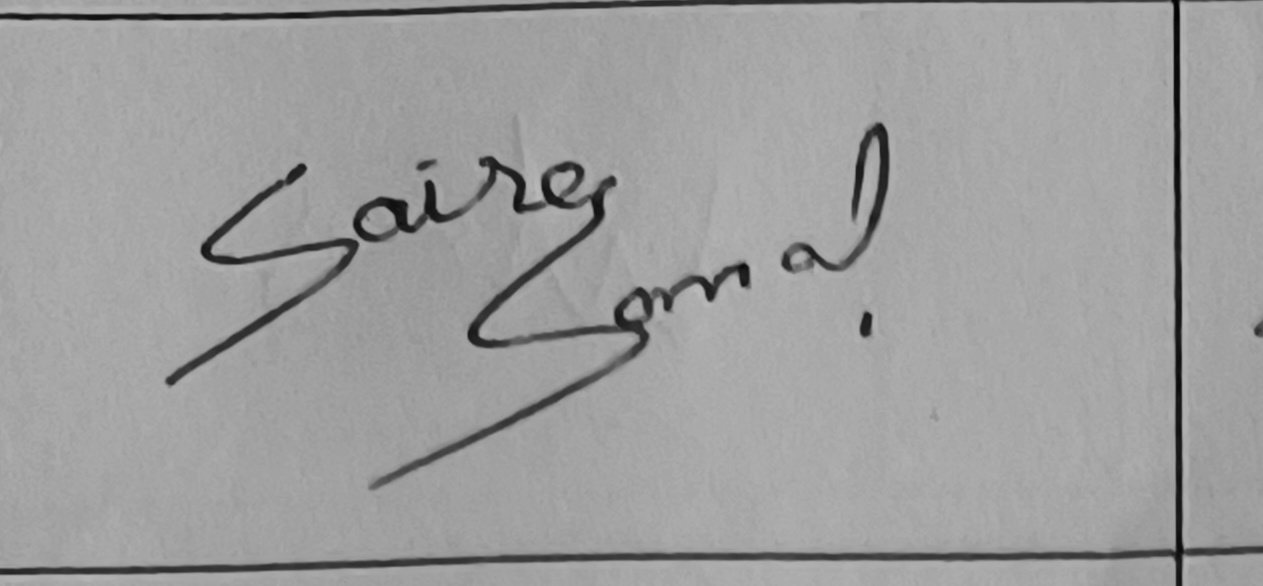 Saires
Samal